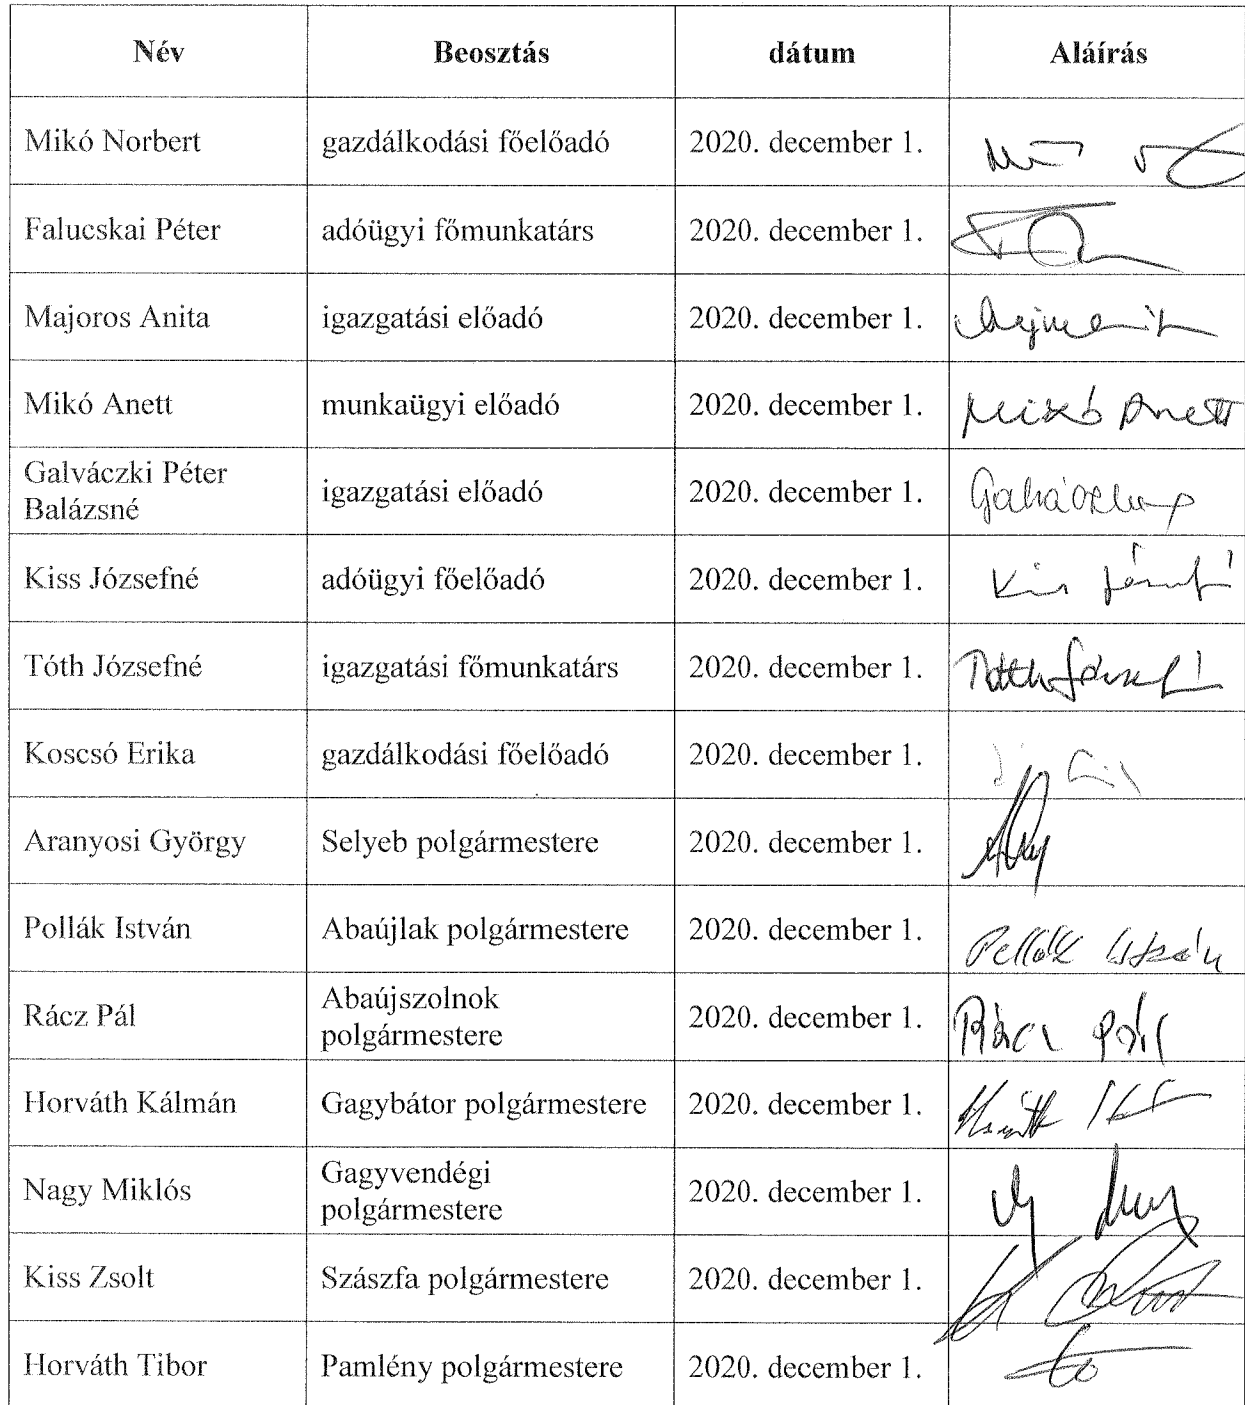 Név Beosztás dátum Aláírás
Mikó Norbert gazdálkodási főelőadó 2020. december 1.
Falucskai Péter adóügyi főmunkatárs 2020. december 1.
Majoros Anita igazgatási előadó 2020. december 1.
Mikó Anett munkaügyi előadó 2020. december 1. Mikó Anett
Galváczki Péter
Balázsné
igazgatási előadó 2020. december 1.
Kiss Józsefné adóügyi főelőadó 2020. december 1.
Tóth Józsefné igazgatási főmunkatárs 2020. december 1.
Koscsó Erika gazdálkodási főelőadó 2020. december 1.
Aranyosi György Selyeb polgármestere 2020. december 1.
Pollák István Abaújlak polgármestere 2020. december 1. Pollák István
Rácz Pál
Abaújszolnok
polgármestere
2020. december 1. Rácz Pál
Horváth Kálmán Gagybátor polgármestere 2020. december 1.
Nagy Miklós
Gagyvendégi
polgármestere
2020. december 1.
Kiss Zsolt Szászfa polgármestere 2020. december 1.
Horváth Tibor Pamlény polgármestere 2020. december 1.